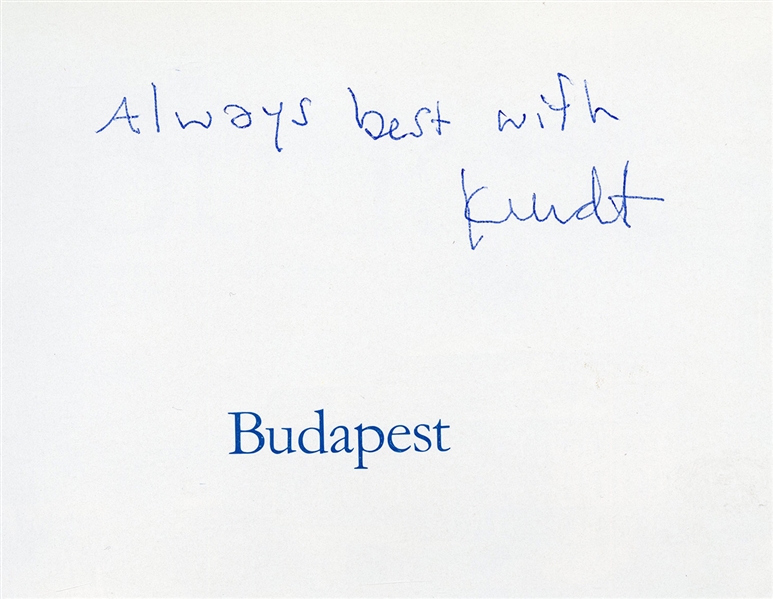 Always best with
Kundt
Budapest